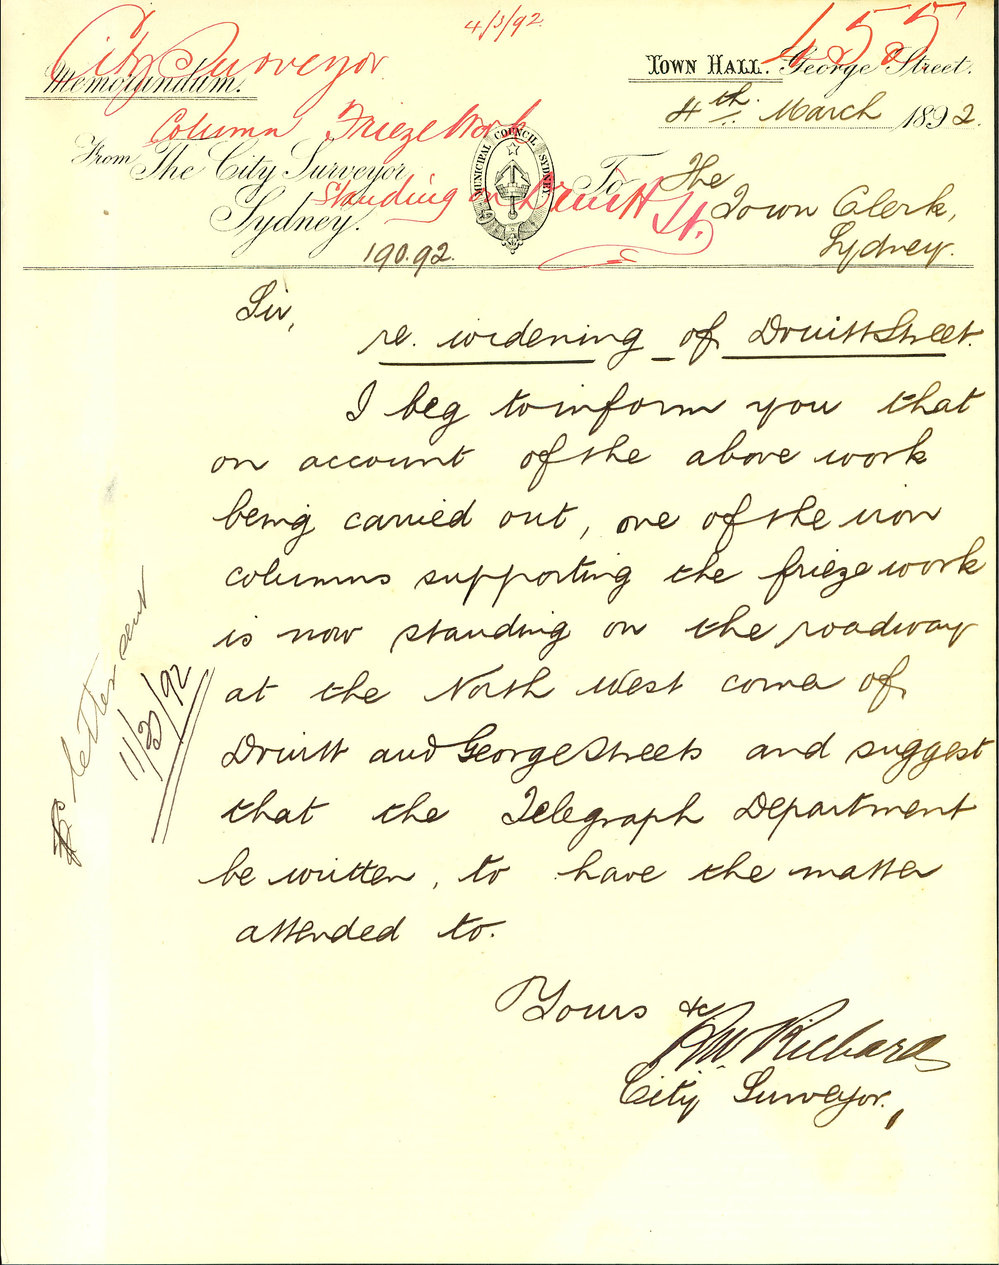 4/3/92
City Surveyor
455
Memorandum.
Town Hall. George Street.
Column Frieze Work
4th March 1892.
From The City Surveyor
Sydney.
MUNICIPAL COUNCIL SYDNEY
Standing on Druitt St.
To The
Town Clerk,
Sydney.
190.92.
Sir,
re. widening of Druitt Street.
I beg to inform you that
on account of the above work
being carried out, one of the iron
columns supporting the frieze work
is now standing on the roadway
at the North West corner of
Druitt and George Streets and suggest
that the Telegraph Department
be written, to have the matter
attended to.
letter sent
11/3/92
Yours &c
R W Richards
City Surveyor.